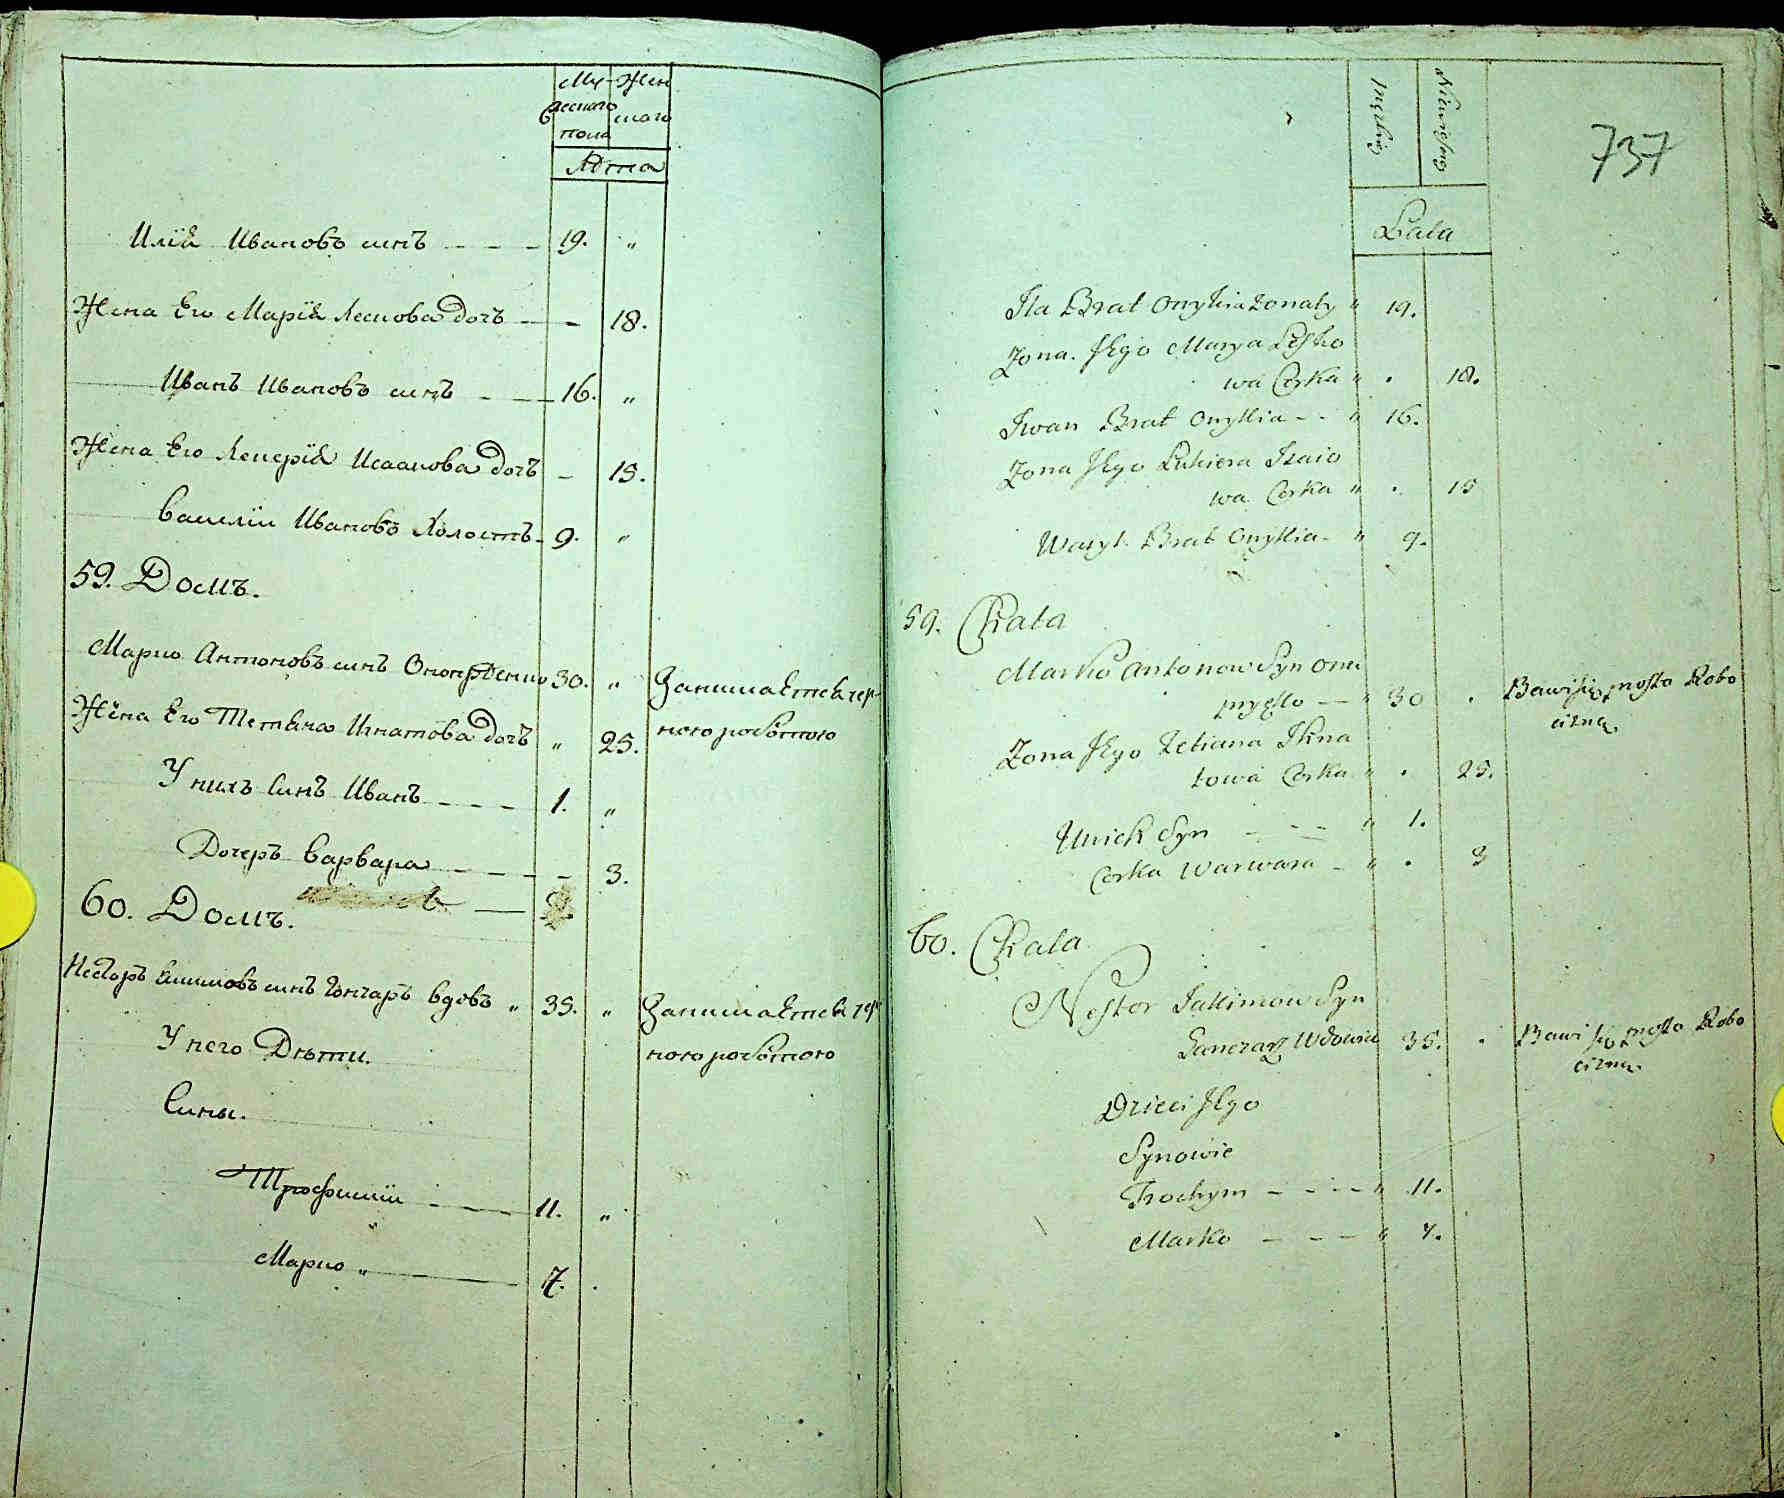 Му-
жеского
пола
Жен
скаго
Лѣта
Илїя Ивановъ синъ - - - 19. "
Жена Его Марїя Лескова дочъ - - 18.
Иванъ Ивановъ синъ - - 16. "
Жена Его Лукерїя Исакова дочъ - 15.
Василїи Ивановъ Холостъ - 9. "
59. Домъ.
Марко Антоновъ синъ 30. " Занимаетса чер-
Жена Его Тетяна Игнатова дочъ " 25. ною роботою
У нихъ Синъ Иванъ - - - - 1. "
Дочеръ Варвара - - - - 3.
60. Домъ.
Несторъ Екимовъ синъ Гончаръ вдовъ " 35. " Занимаетса чер
У него Дѣти. ною роботою
Сины.
Трофимїи - - - 11. "
Марко " - 7. .
737
Męzkiey
Niewieskiey
Lata
Ila Brat Onykia żonaty " 19.
Zona Jego Marya Leszko
wa Corka " . 18.
Iwan Brat Onykia - - " 16.
Zona Jego Lukiera Isaio
wa Corka " . 15
Wasyl Brat Onykia - " 9.
59. Chata
Marko Antonow Syn Onu
pryszko - " 30 . Bawi się prosto Robo
cizną
Zona Jego Tetiana Ihna
towa Corka " . 25.
Unich Syn - - - " 1.
Corka Warwara - " . 3
60. Chata
Nestor Jakimow Syn
Ganczarz Wdowiec 35. . Bawi się prosto Robo
cizną
Dzieci Jego
Synowie
Trochym - - - - " 11.
Marko - - - " 7.